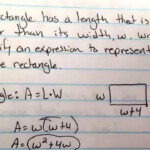 ctangle has a length that is
r than its width, w. Wr
ify an expression to represent
e rectangle.
gle: A=L·W
w
w+4
A=w(w+4)
A=(w²+4w)